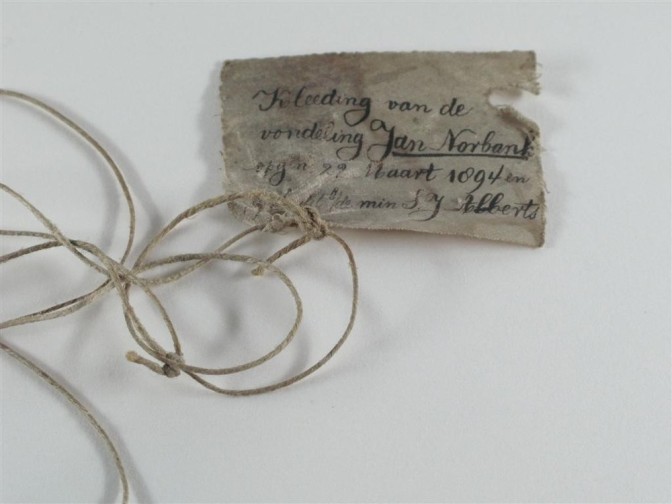 Kleeding van de
vondeling Jan Norbank
29 Maart 1894 en
min S J Alberts